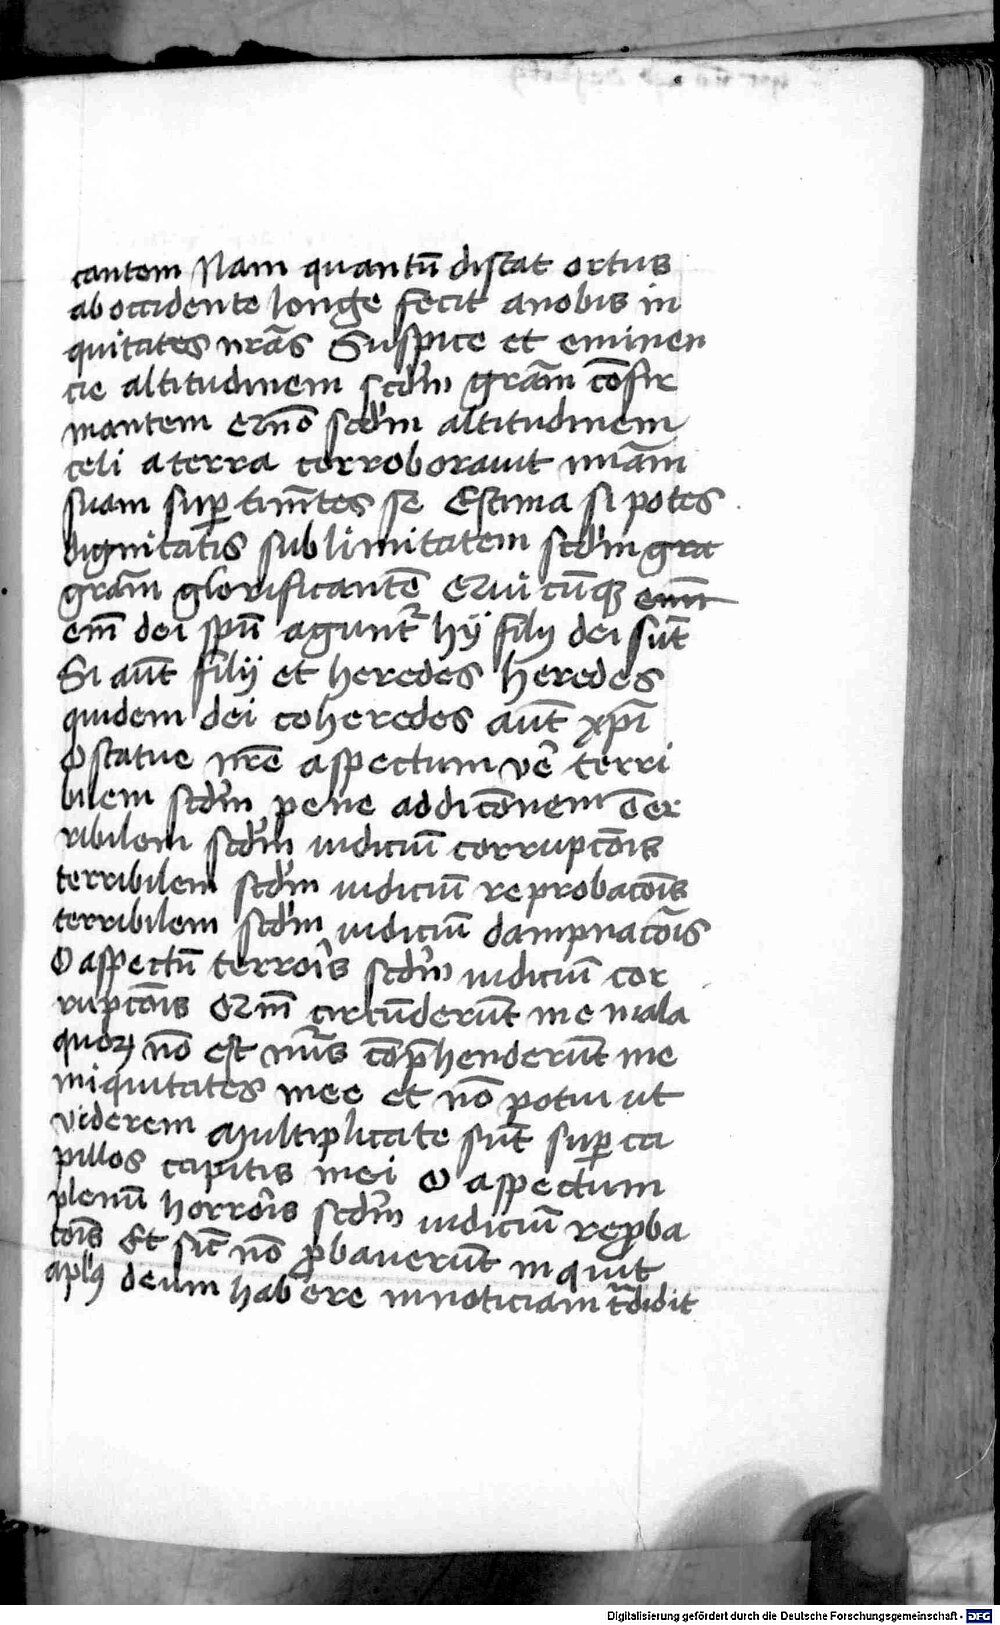 cantem Nam quantū distat ortus
ab occidente longe fecit anobis in
quitates nr̄as Suspice et eminen
cie altitudinem scd'm grām cōfir
mantem Qm̄o scd'm altitudinem
celi a terra corroborauit miam̄
suam suꝑ tim̄tes se Estima si potes
dignitatis sublimitatem scd'm gra
grām glorificantē Quicūqꝫ enim
em̄ dei spū agunt᷑ hÿ filÿ dei sūt
Si aūt filÿ et heredes heredes
quidem dei coheredes aūt xp̄i
O statue nr̄e aspectum vē terri
bilem scd'm pene addicōnem O ter
ribilem scd'm iudiciū corrupcōis
terribilem scd'm iudiciū reprobacōis
terribilem scd'm iudiciū dampnacōis
O aspectū terrorīs scd'm iudiciū cor
rupcōis Qm̄ circūderūt me mala
quoꝝ nō est nūs cōp̄henderūt me
iniquitates mee et nō potui ut
viderem Multiplicate sūt suꝑ ca
pillos capitis mei O aspectum
plenū horrorīs scd'm iudiciū reꝓba
cōis Et sic̄ nō ꝓbauerūt inquit
apl'us deum habere innoticiam tr̄didit
Digitalisierung gefördert durch die Deutsche Forschungsgemeinschaft - DFG